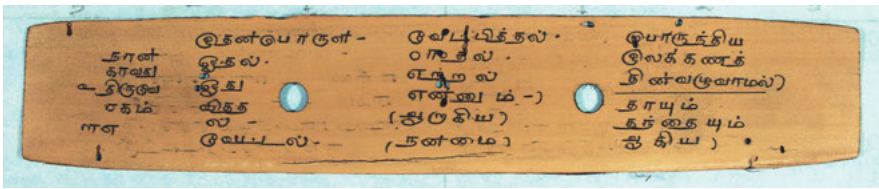 நான்
காவது
சகம்
இதன்பொருள் -
ஓதல்.
ஓது
வித்த
ல்
வேட்டல்.
வேட்பித்தல்.
ஏற்றல்
என்னும்-)
(ஆகிய)
(நன்மை)
பொருந்திய
இலக்கணத்
தின்வழுவாமல்)
தாயும்
தந்தையும்
ஆகிய)